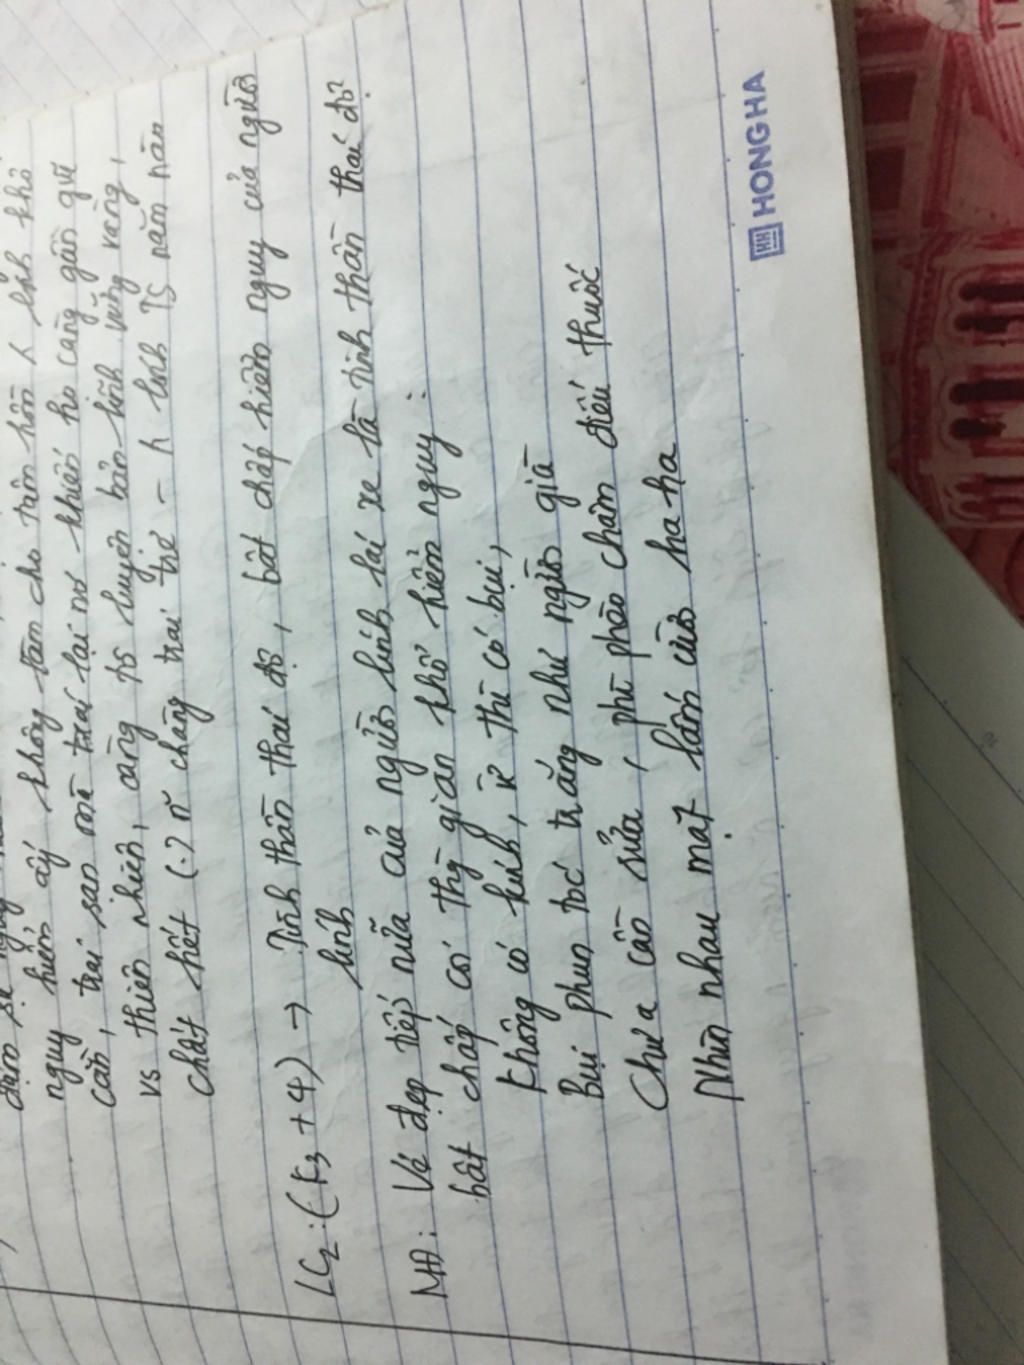 nguy hiểm ấy không làm cho tâm hồn lính khô
cằn, trai sạn mà trái lại nó khiến họ càng gần gũi
vs thiên nhiên, càng tôi luyện bản lĩnh vững vàng,
chất hết (.) n~ chàng trai trẻ - h lính TS năm nào
LC2: (K3 + 4) → Tinh thần thái độ, bất chấp hiểm nguy của người
lính
MĐ: Vẻ đẹp tiếp nữa của người lính lái xe là tinh thần thái độ
bất chấp coi thg gian khổ hiểm nguy:
Không có kính, ừ thì có bụi,
Bụi phun tóc trắng như người già
Chưa cần rửa, phì phèo châm điếu thuốc
Nhìn nhau mặt lấm cười ha ha
HONG HA